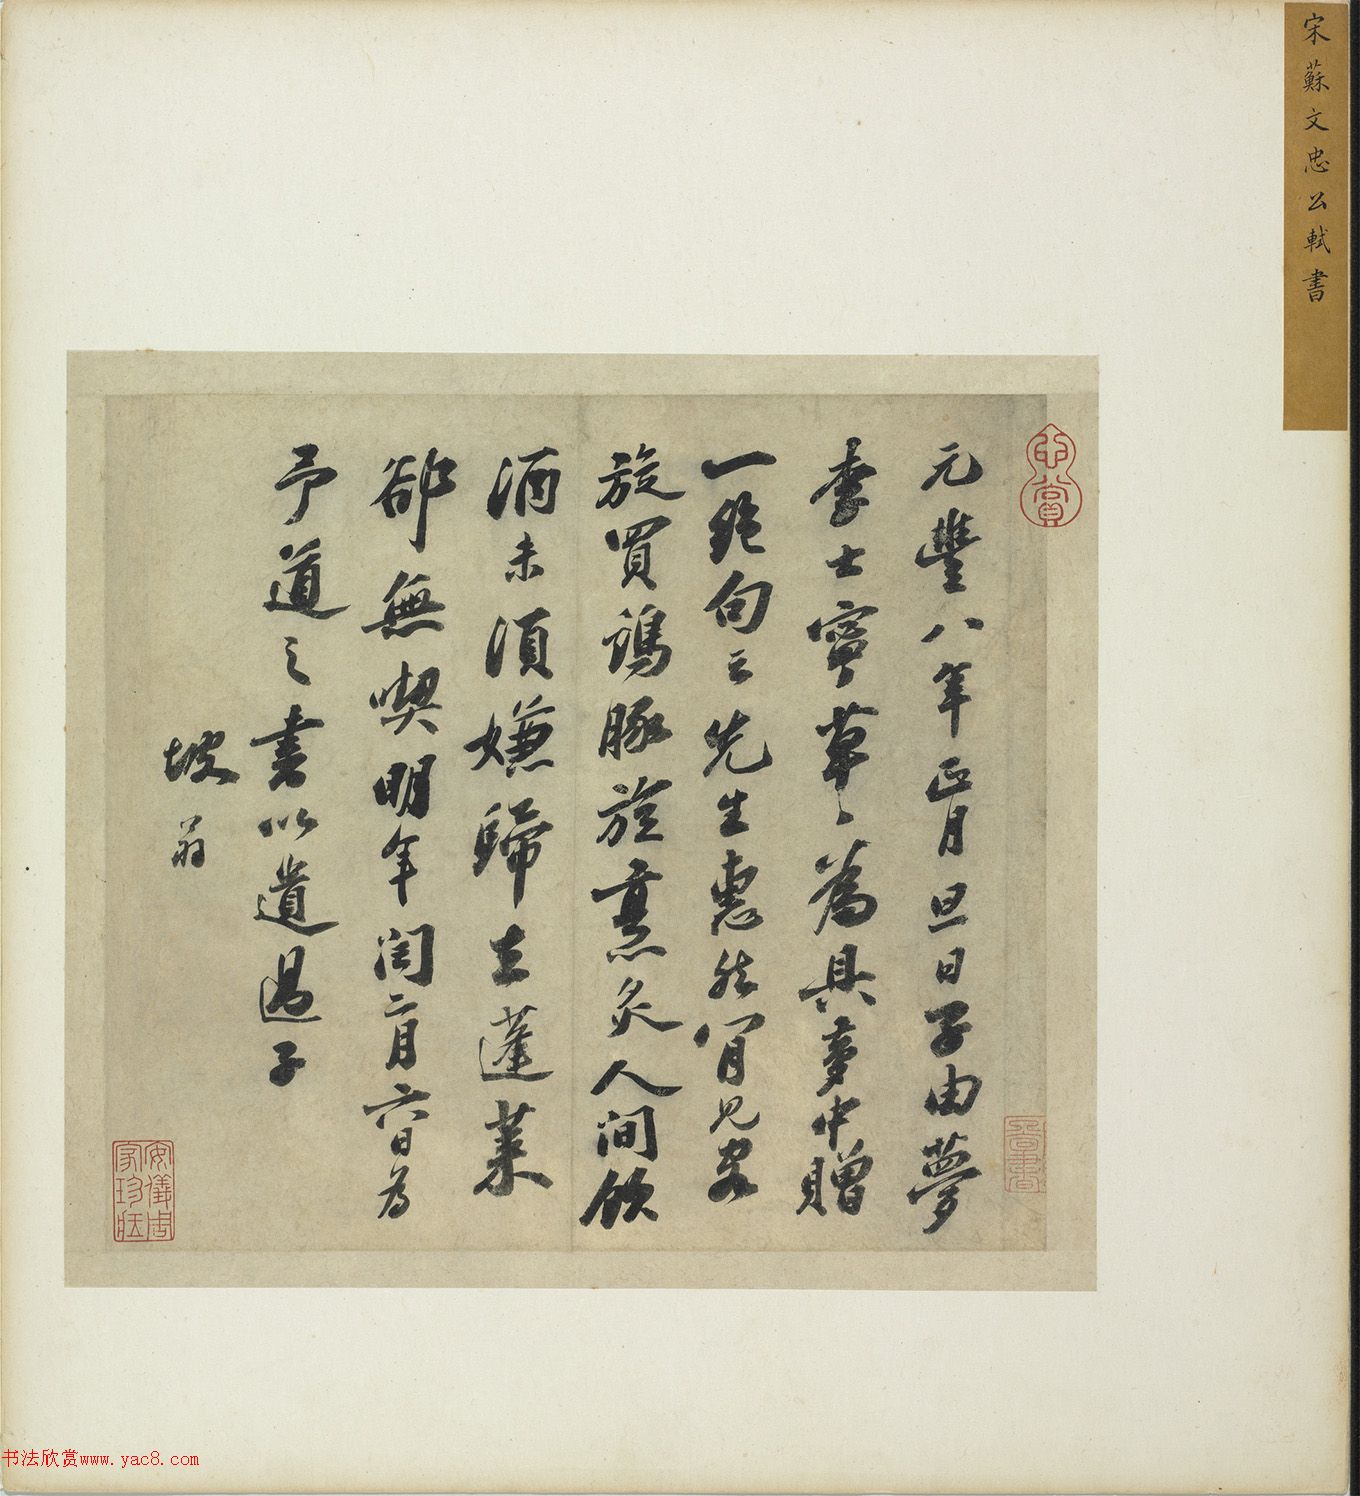 宋蘇文忠公軾書
元豐八年正月旦日子由夢
李士寧草〻為具夢中贈
一絕句云先生惠然肯見客
旋買鷄豚旋烹炙人間飲
酒未須嫌歸去蓬萊
卻無喫明年閏二月六日為
予道之書以遺過子
坡翁
心賞
安儀周家珍藏
书法欣赏www.yac8.com